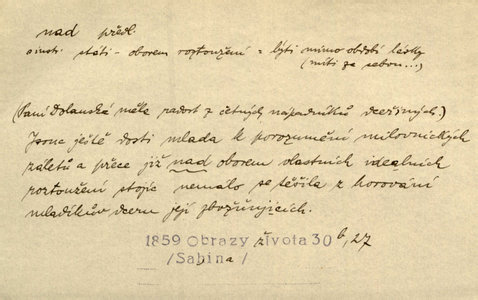 nad předl.
státi - oborem roztoužení = býti mimo období lásky
(míti za sebou...)
(Paní Dolanská měla radost z četných nápadníků dceřiných.)
Jsouc ještě dosti mlada k porozumění milovnických
záletů a přece již nad oborem vlastních idealních
roztoužení stojíc nemálo se těšila z horování
mladíkův dceru její zbožňujících.
1859 Obrazy života 30 b, 27
/Sabina/